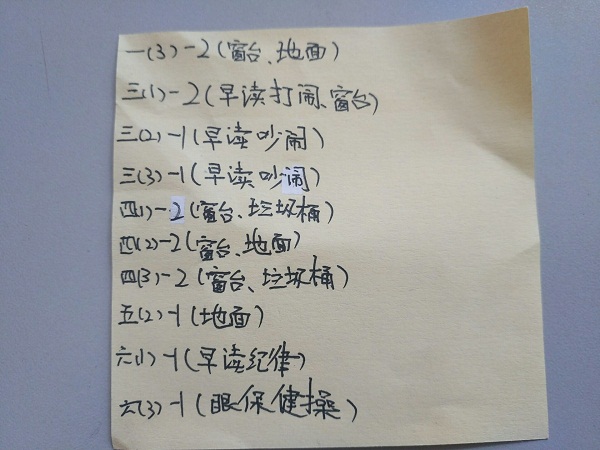 一(3)-2(窗台、地面)
三(1)-2(早读打闹、窗台)
三(2)-1(早读吵闹)
三(3)-1(早读吵闹)
四(1)-2(窗台、垃圾桶)
四(2)-2(窗台、地面)
四(3)-2(窗台、垃圾桶)
五(2)-1(地面)
六(1)-1(早读纪律)
六(3)-1(眼保健操)